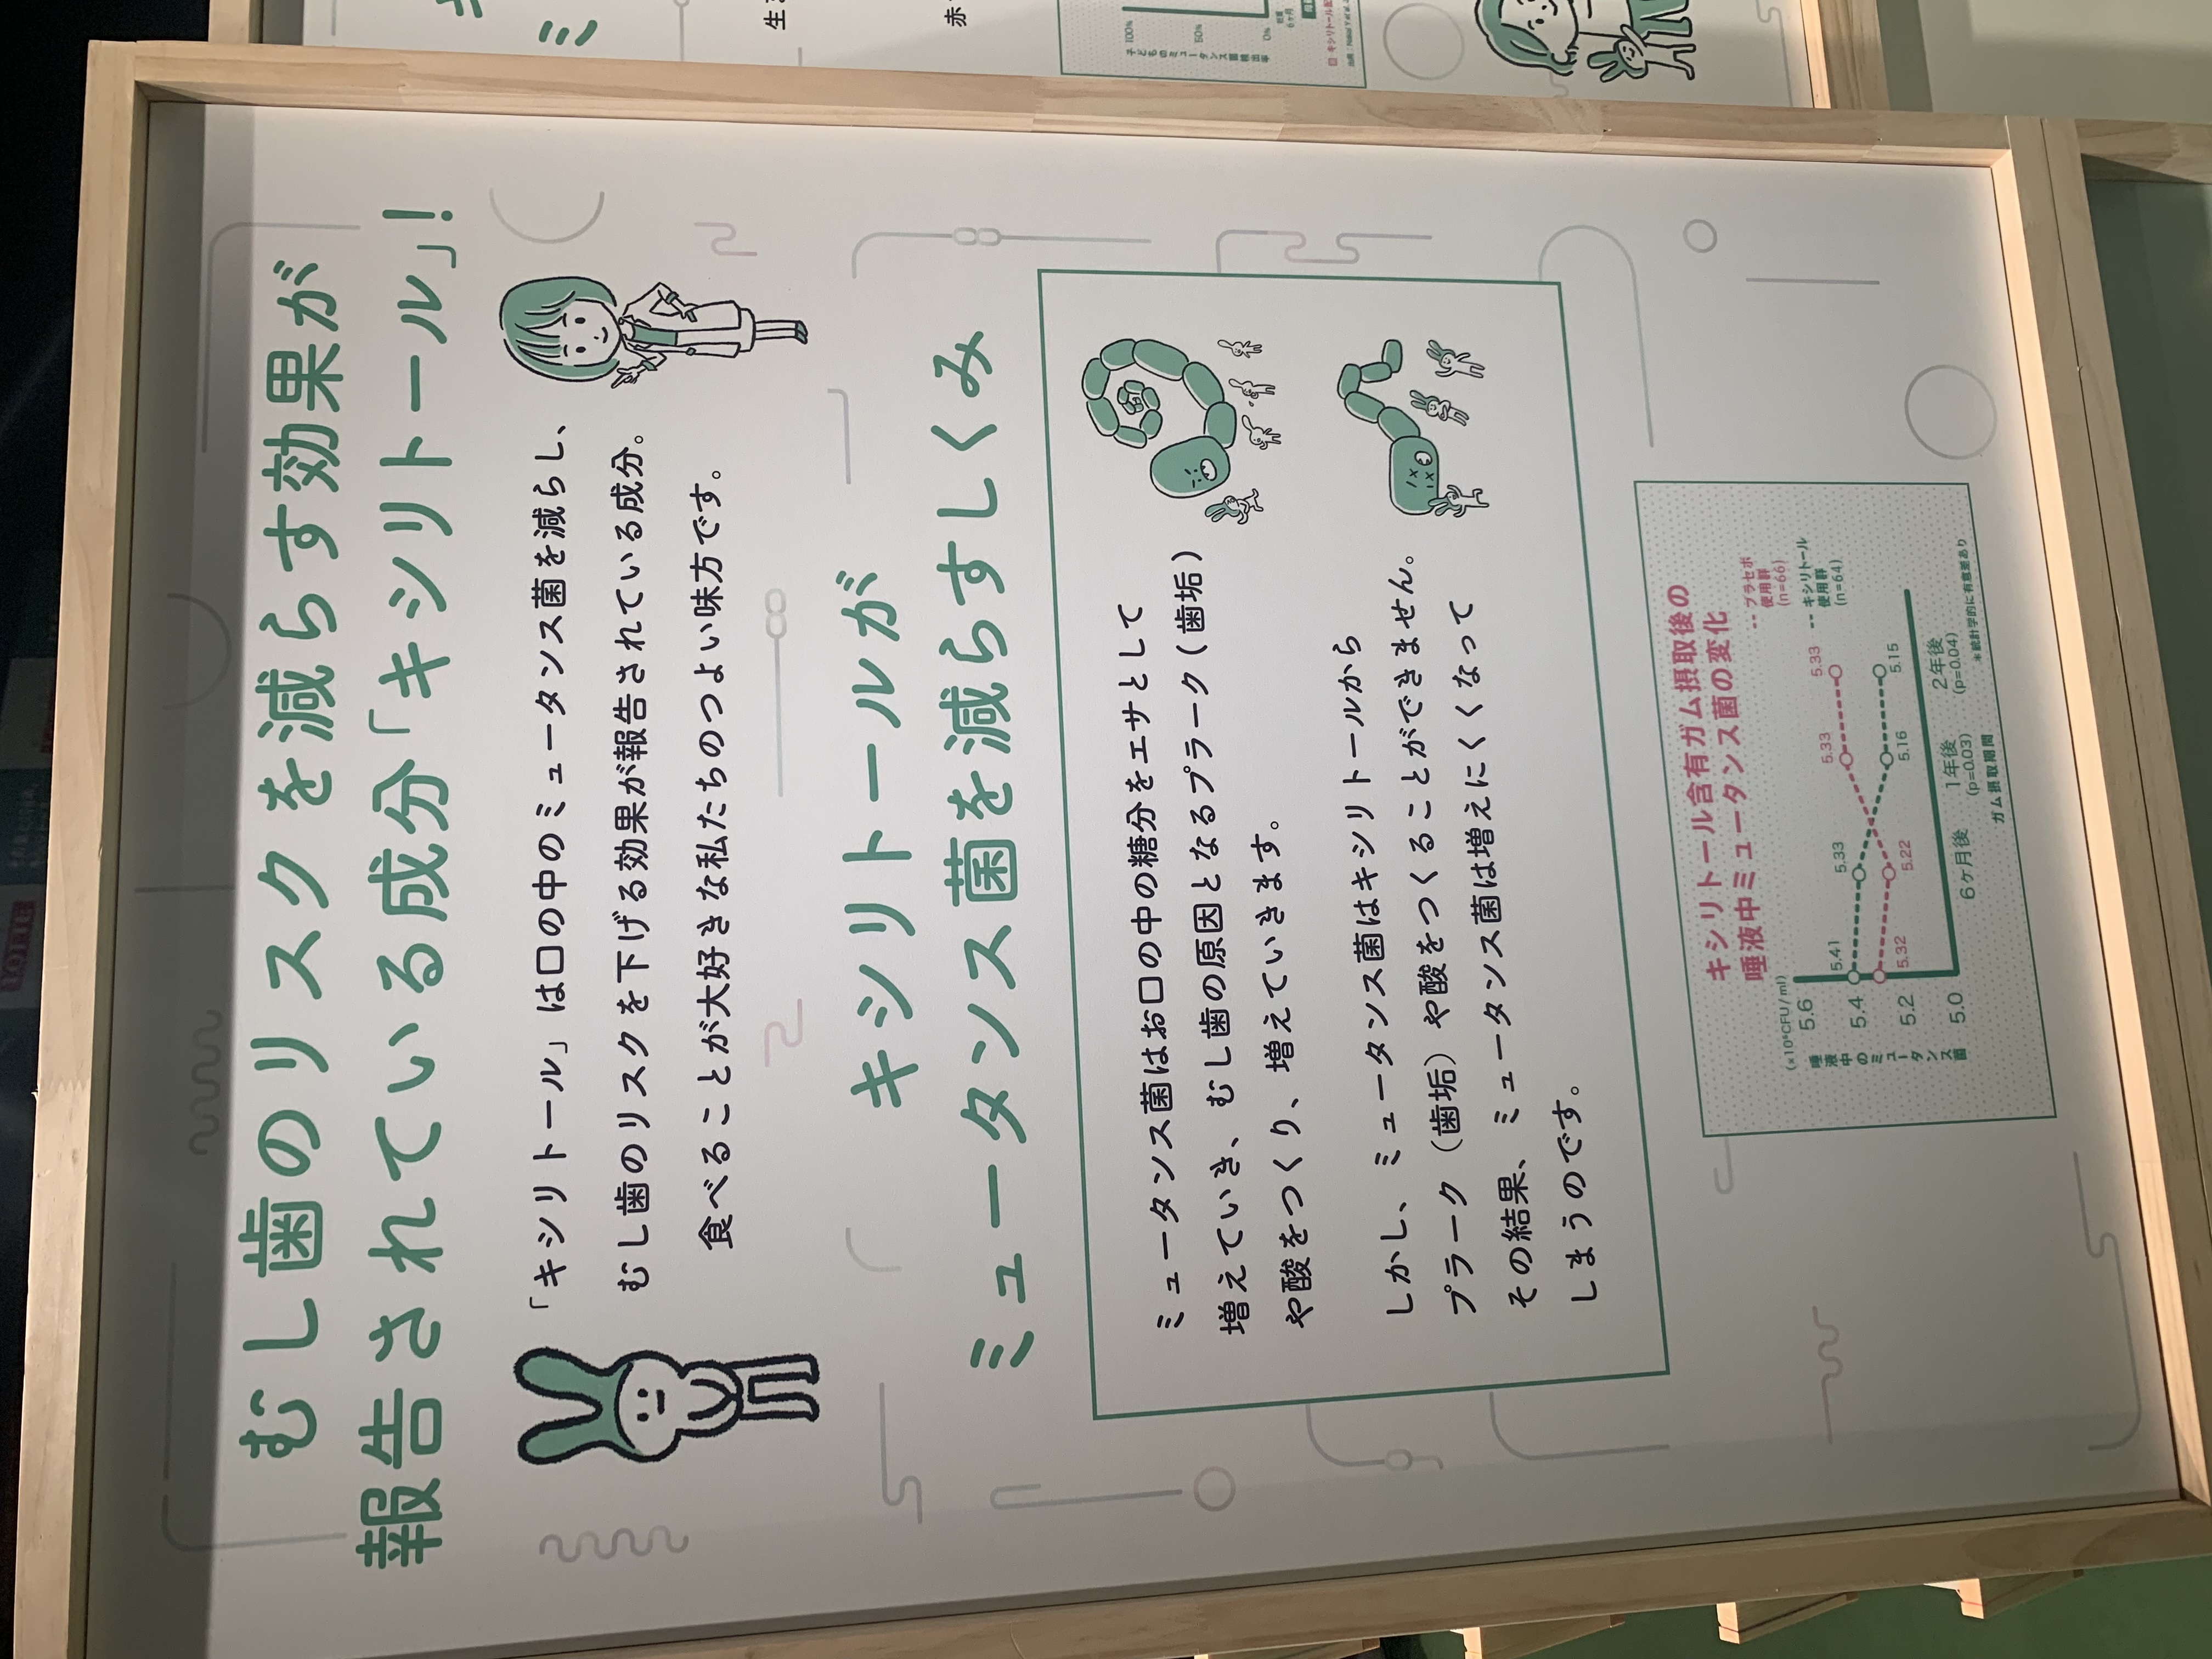 むし歯のリスクを減らす効果が
報告されている成分「キシリトール」!
「キシリトール」は口の中のミュータンス菌を減らし、
むし歯のリスクを下げる効果が報告されている成分。
食べることが大好きな私たちのつよい味方です。
キシリトールが
ミュータンス菌を減らすしくみ
ミュータンス菌はお口の中の糖分をエサとして
増えていき、むし歯の原因となるプラーク(歯垢)
や酸をつくり、増えていきます。
しかし、ミュータンス菌はキシリトールから
プラーク(歯垢)や酸をつくることができません。
その結果、ミュータンス菌は増えにくくなって
しまうのです。
キシリトール含有ガム摂取後の
唾液中ミュータンス菌の変化
プラセボ
使用群
(n=66)
キシリトール
使用群
(n=64)
唾液中のミュータンス菌
5.6
5.4
5.2
5.0
5.41
5.33
5.16
5.15
5.32
5.22
5.33
5.33
6ケ月後
1年後
(p=0.03)
2年後
(p=0.04)
ガム摂取期間
※統計学的に有意差あり
100%
50%
0%
子どものミュータンス菌検出率